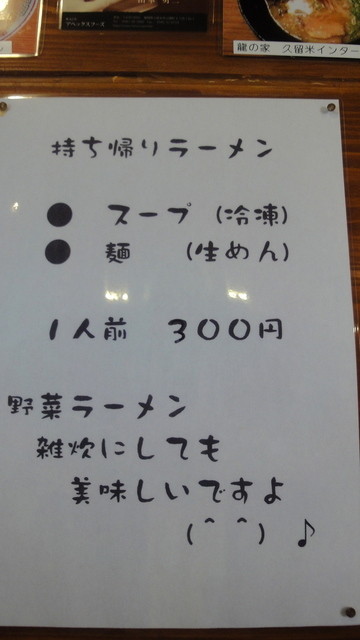 龍の家 久留米インター
持ち帰りラーメン
● スープ (冷凍)
● 麺 (生めん)
1人前 300円
野菜ラーメン
雑炊にしても
美味しいですよ
(＾＾)♪